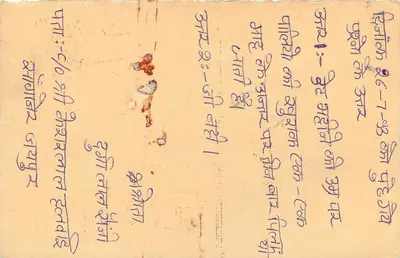 दिनांक 26-7-98 को पूछे गये
प्रश्नों के उत्तर
उत्तर 1:- डेढ़ महीने की उम्र पर
पोलियो की खुराक एक-एक
माह के अन्तर पर तीन बार पिलाई
जाती है।
उत्तर 2:- जी नहीं।
श्रोता
लाल सैनी
पता:- C/o श्री लाल हलवाई
सांगानेर जयपुर